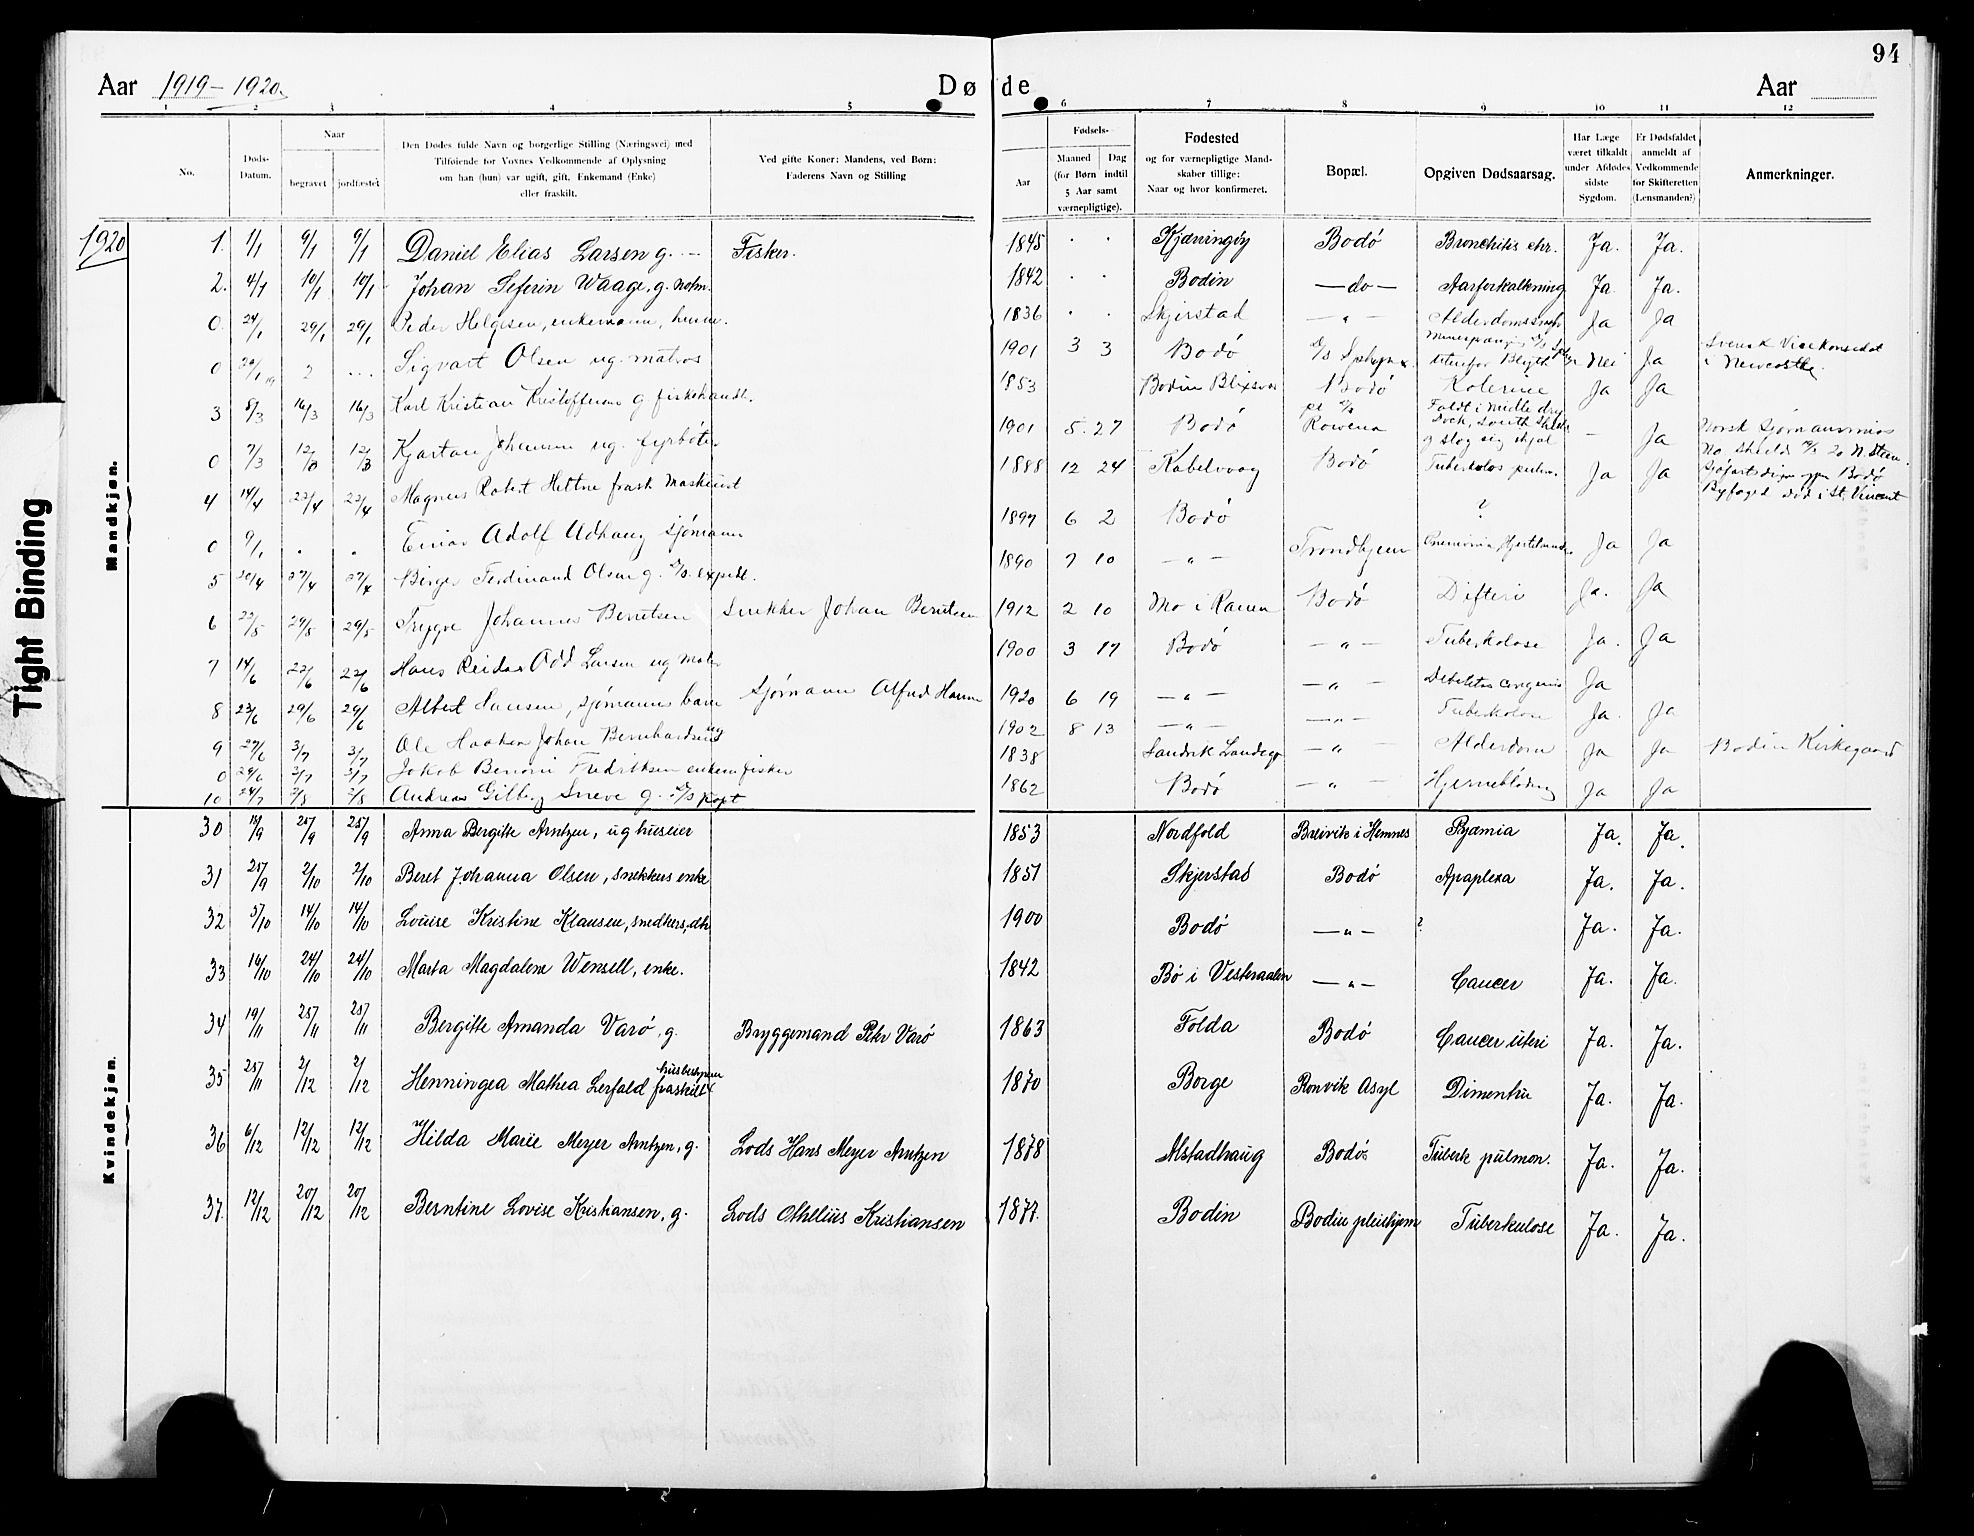 94
Aar 1919-1920.
Døde
Aar
1 2 3 4 5 6 7 8 9 10 11 12
No.
Døds-Datum.
Naar
begravet
jordfæstet
Den Dødes fulde Navn og borgerlige Stilling (Næringsvei) med
Tilføiende for Voxnes Vedkommende af Oplysning
om han (hun) var ugift, gift, Enkemand (Enke)
eller fraskilt.
Ved gifte Koner: Mandens, ved Børn:
Faderens Navn og Stilling
Fødsels-
Aar
Maaned Dag
(for Børn indtil
5 Aar samt
værnepligtige).
Fødested
og for værnepligtige Mand-
skaber tillige:
Naar og hvor konfirmeret.
Bopæl.
Opgiven Dødsaarsag.
Har Læge
været tilkaldt
under Afdødes
sidste
Sygdom.
Er Dødsfaldet
anmeldt af
Vedkommende
for Skifteretten
(Lensmanden?)
Anmerkninger.
Tight Binding
Mandkjøn.
1920
1. 1/1 9/1 9/1 Daniel Elias Larsen g. Fisker. 1845 Kjæringøy Bodö Bronchitis chr. Ja. Ja.
2. 4/1 10/1 10/1 Johan Seferin Waage, g. 1842 Bodin —do— Aarforkalkning Ja Ja.
0. 24/1 29/1 29/1 Peder Helgesen, enkemann, 1836 Skjerstad —"— Ja Ja
0 Sigvart Olsen ug. matros 1901 3 3 Bodö Nei Ja Svensk Visekonsulat
i Newcastle.
3 8/3 16/3 16/3 Karl Kristian g fiskehandl. 1853 Bodin Bodö Ja Ja
0 7/3 Kjartan Johansen ug. fyrböter 1901 5. 27 Bodö Rowena Faldt i
Dock, South
g slog sig ihjal — Ja Norsk
4 14/4 22/4 22/4 Magnus Robert Hettne 1888 12 24 Kabelvaag Bodö Ja Ja
0 9/1 . . Einar Adolf sjömann 1897 6 2 Bodö ? Bodö
Byfoged död i St. Vincent
5 20/4 27/4 27/4 Birger Ferdinand Olsen g. 1890 7 10 —"— Trondhjem Ja Ja
6 22/5 29/5 29/5 Trygve Johannes Berntsen Snekker Johan Berntsen 1912 2 10 Mo i Ranen Bodö Difteri Ja. Ja
7 14/6 22/6 22/6 Hans Reidar Odd Larsen ug 1900 3 17 Bodö —"— Tuberkolose Ja. Ja
8 23/6 29/6 29/6 Albert Hansen, sjömanns barn Sjömann Alfred Hansen 1920 6 19 —"— —"— Ja
9 27/6 3/7 3/7 Ole Haakon Johan Bernhardsen ug 1902 8 13 —"— —"— Tuberkolose Ja. Ja
0 3/7 3/7 Jakob Benoni Fredriksen fisker 1838 —"— Alderdom Ja Ja Bodin Kirkegaard
10 24/7 2/8 2/8 Andreas g. 1862 Bodö —"— Hjerneblödning Ja Ja
Kvindekjøn.
30 25/9 25/9 Anna Bergitte Arntzen, ug huseier 1853 Nordfold Breivik i Hemnes Pyämia Ja. Ja.
31 25/9 2/10 2/10 Beret Johanna Olsen, snekkers enke 1851 Skjerstad Bodö Apaplexa Ja. Ja.
32 14/10 14/10 Louise Kristine Klausen, snedkers, dtr 1900 Bodö —"— ? Ja. Ja.
33 16/10 24/10 24/10 Marta Magdalene Wensell, enke. 1842 Bö i Vesteraalen —"— Cancer Ja. Ja.
34 19/11 25/11 25/11 Bergitte Amanda Varö, g. Bryggemand Peter Varö 1863 Folda Bodö Cancer uteri Ja. Ja.
35 25/11 2/12 2/12 Henningea Mathea Lerfald fraskilt 1870 Borge Ronvik Asyl Ja. Ja.
36 6/12 12/12 12/12 Hilda Marie Meyer Arntzen, g. Lods Hans Meyer Arntzen 1878 Alstadhaug Bodö Tuberk pulmon. Ja. Ja.
37. 12/12 20/12 20/12 Berntine Lovise Kristiansen, g. Lods Othelius Kristiansen 1877. Bodin Bodin pleiehjem Tuberkulose Ja. Ja.